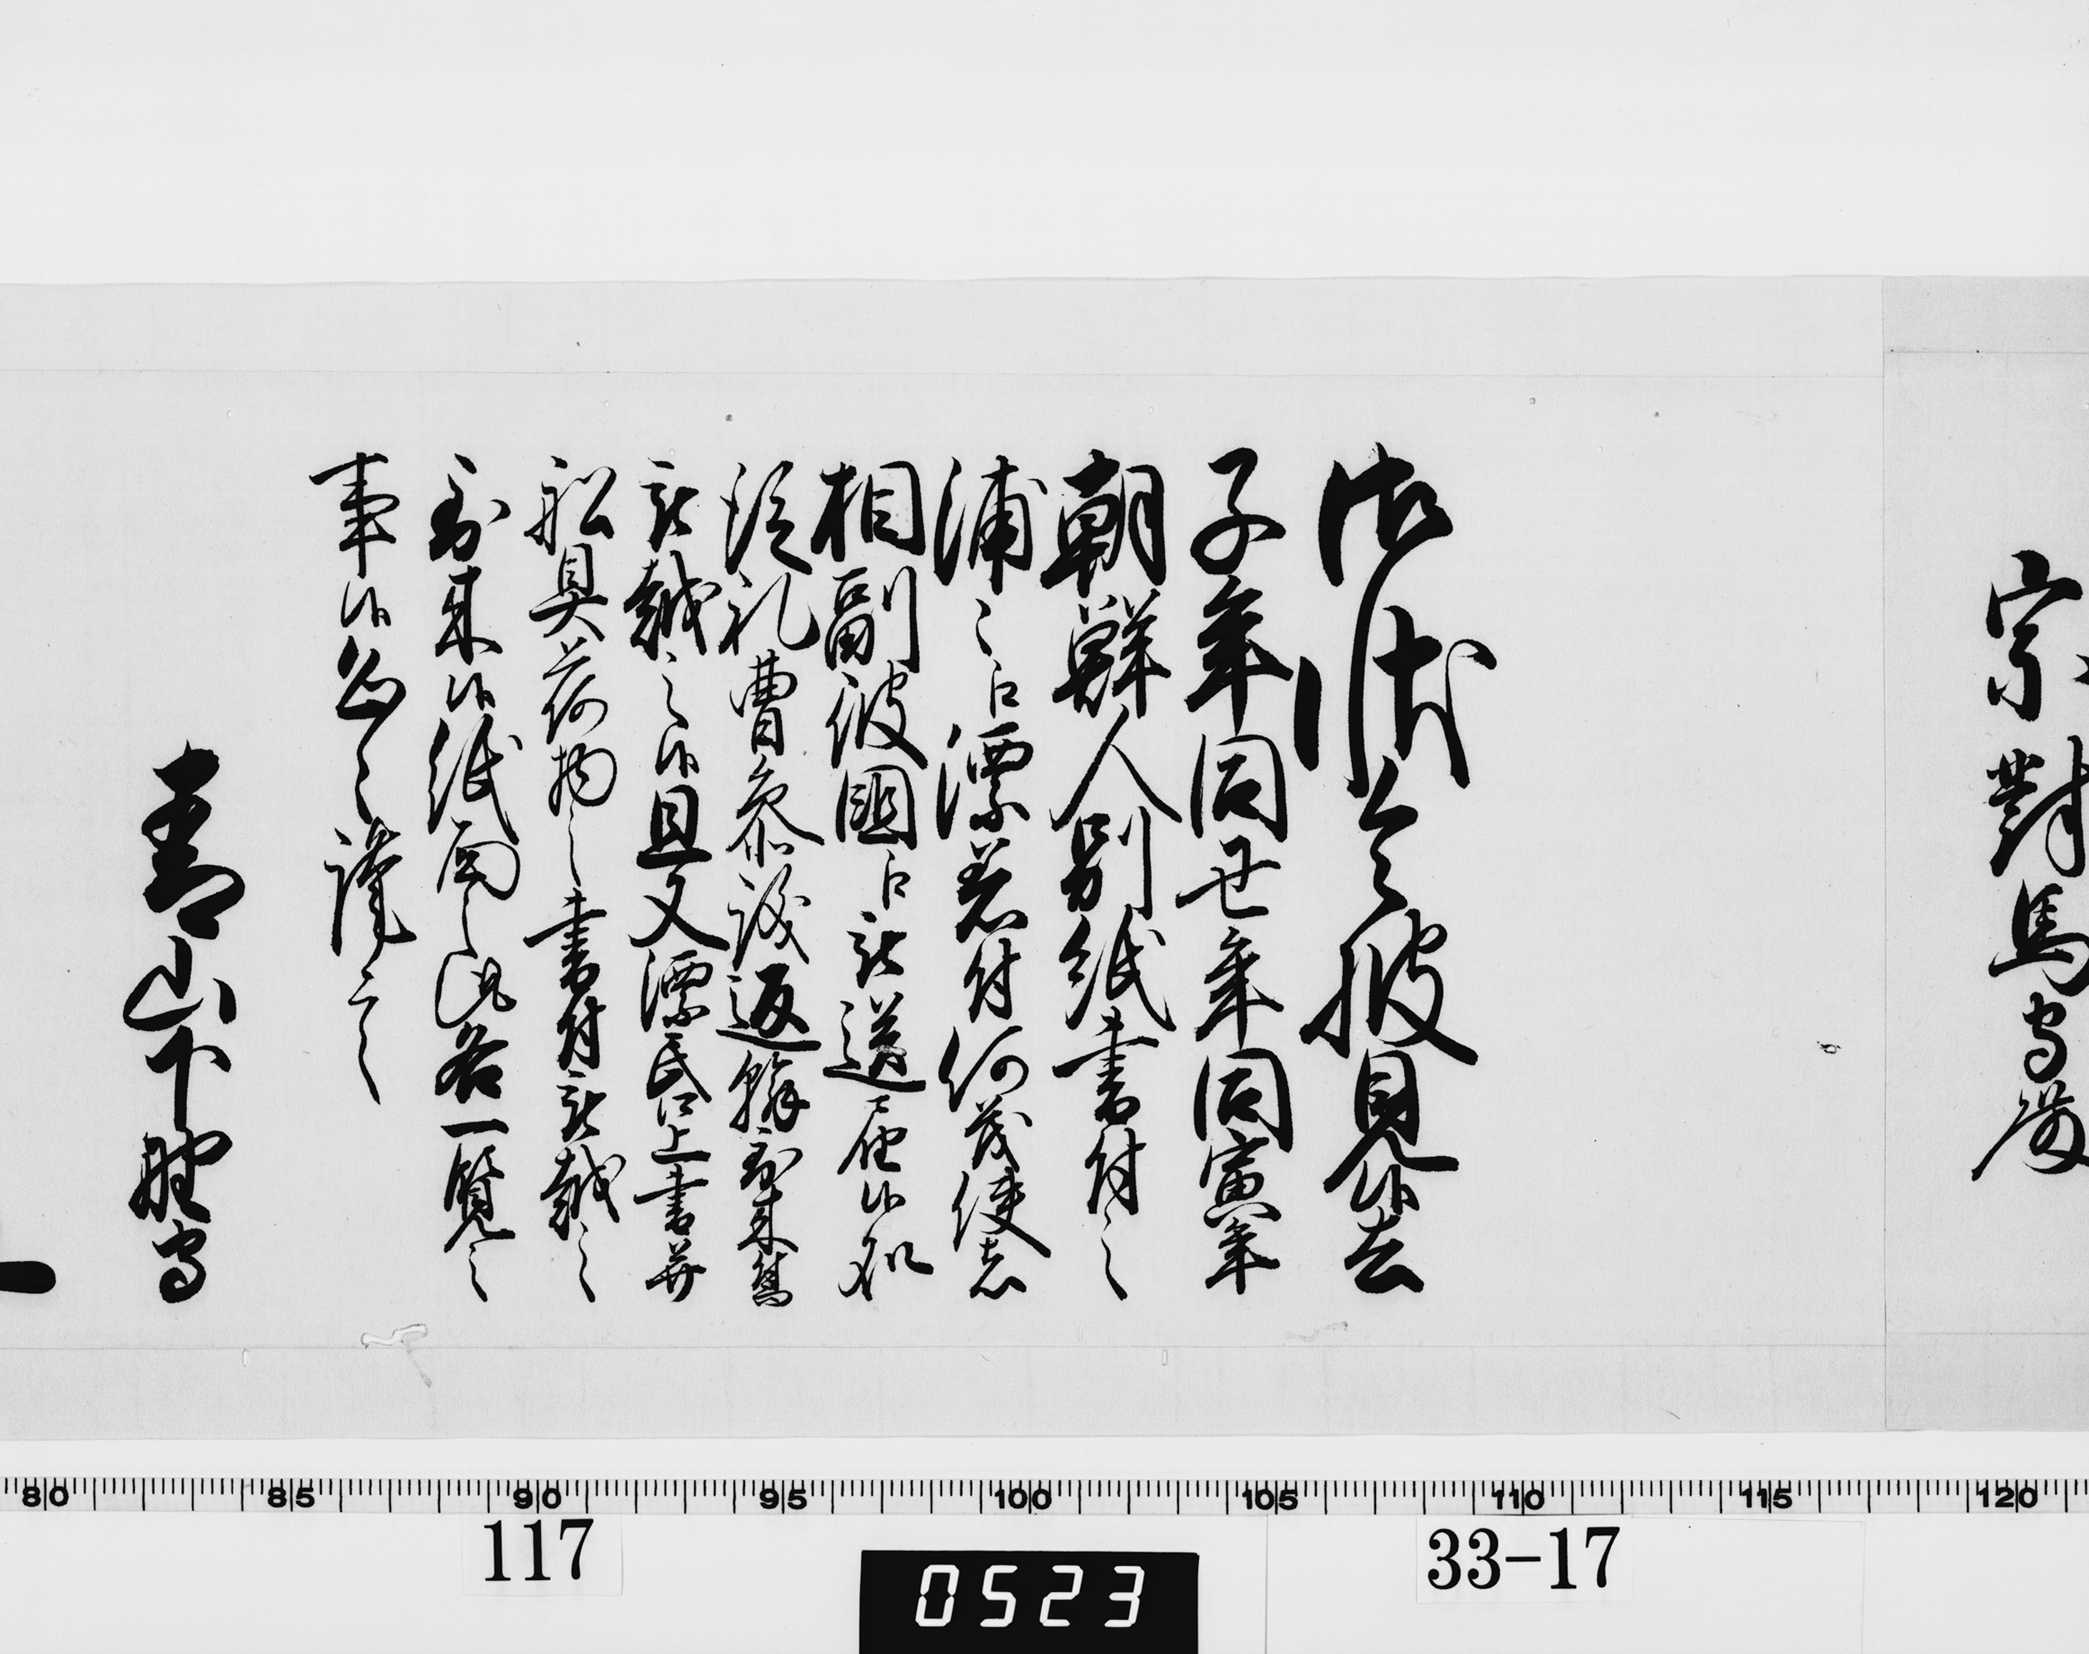 宗對馬守殿
御状令披見候去
子年同丑年同寅年
朝鮮人別紙書付之
浦々江漂着付何茂使者
相副彼国江被送届候処
従礼曹参議返翰到来写
被越之候且又漂民口上書并
船具荷物之書付被越之
到来候紙面之趣各一覧之
事候恐々謹言
青山下野守
80 85 90 95 100 105 110 115 120
117
0523
33-17